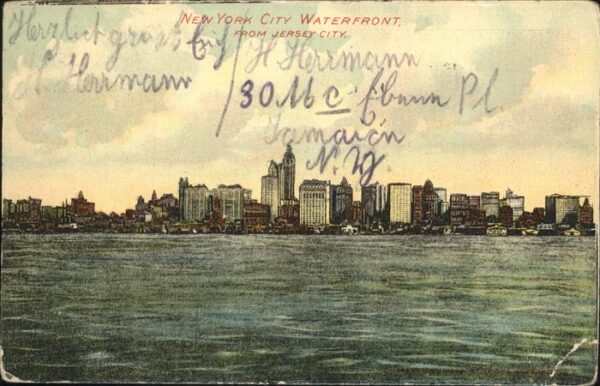 NEW YORK CITY WATERFRONT,
FROM JERSEY CITY.
Herzlich grüsst Euch
H. Herrmann
H Herrmann
30 Mc Pl.
Jamaica
N. Y.